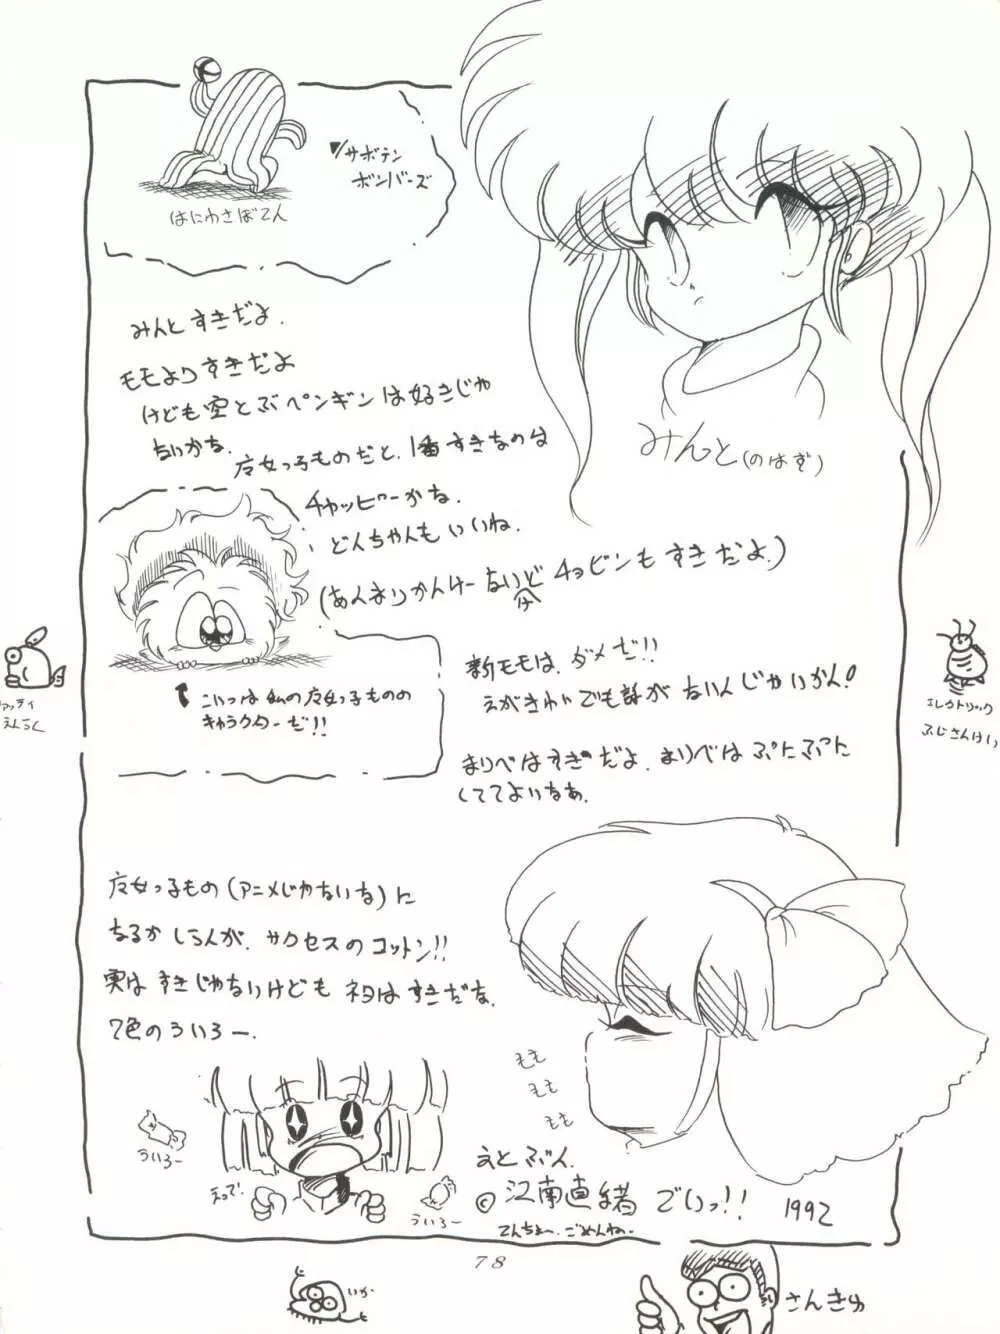 サボテン
ボンバーズ
はにわさぼてん
みんとすきだよ.
モモよりすきだよ
けども空とぶペンギンは好きじゃ
ないかな.
魔女っ子ものだと、1番すきなのは
チャッピーかな.
どんちゃんもいいね.
(あんまりかんけーないけどチョビンもすきだよ.)
みんと(のはず)
こいつは私の魔女っ子ものの
キャラクターだ!!
新モモは、ダメだ!!
えがきれいでも話がないんじゃいかん!
まりべはすきだよ.まりべはぷにぷにた
しててよいなあ.
えんらく
エレクトリック
ふじさんけい
魔女っ子もの(アニメじゃないな)に
なるかしらんが、サクセスのコットン!!
実はすきじゃないけどもネタはすきだな.
7色のういろー.
もも
もも
もも
ういろー
えっで.
ういろー
えとぶん.
©江南直緒でいっ!! 1992
てんちょー.ごめんね..
78
いか
さんきゅ